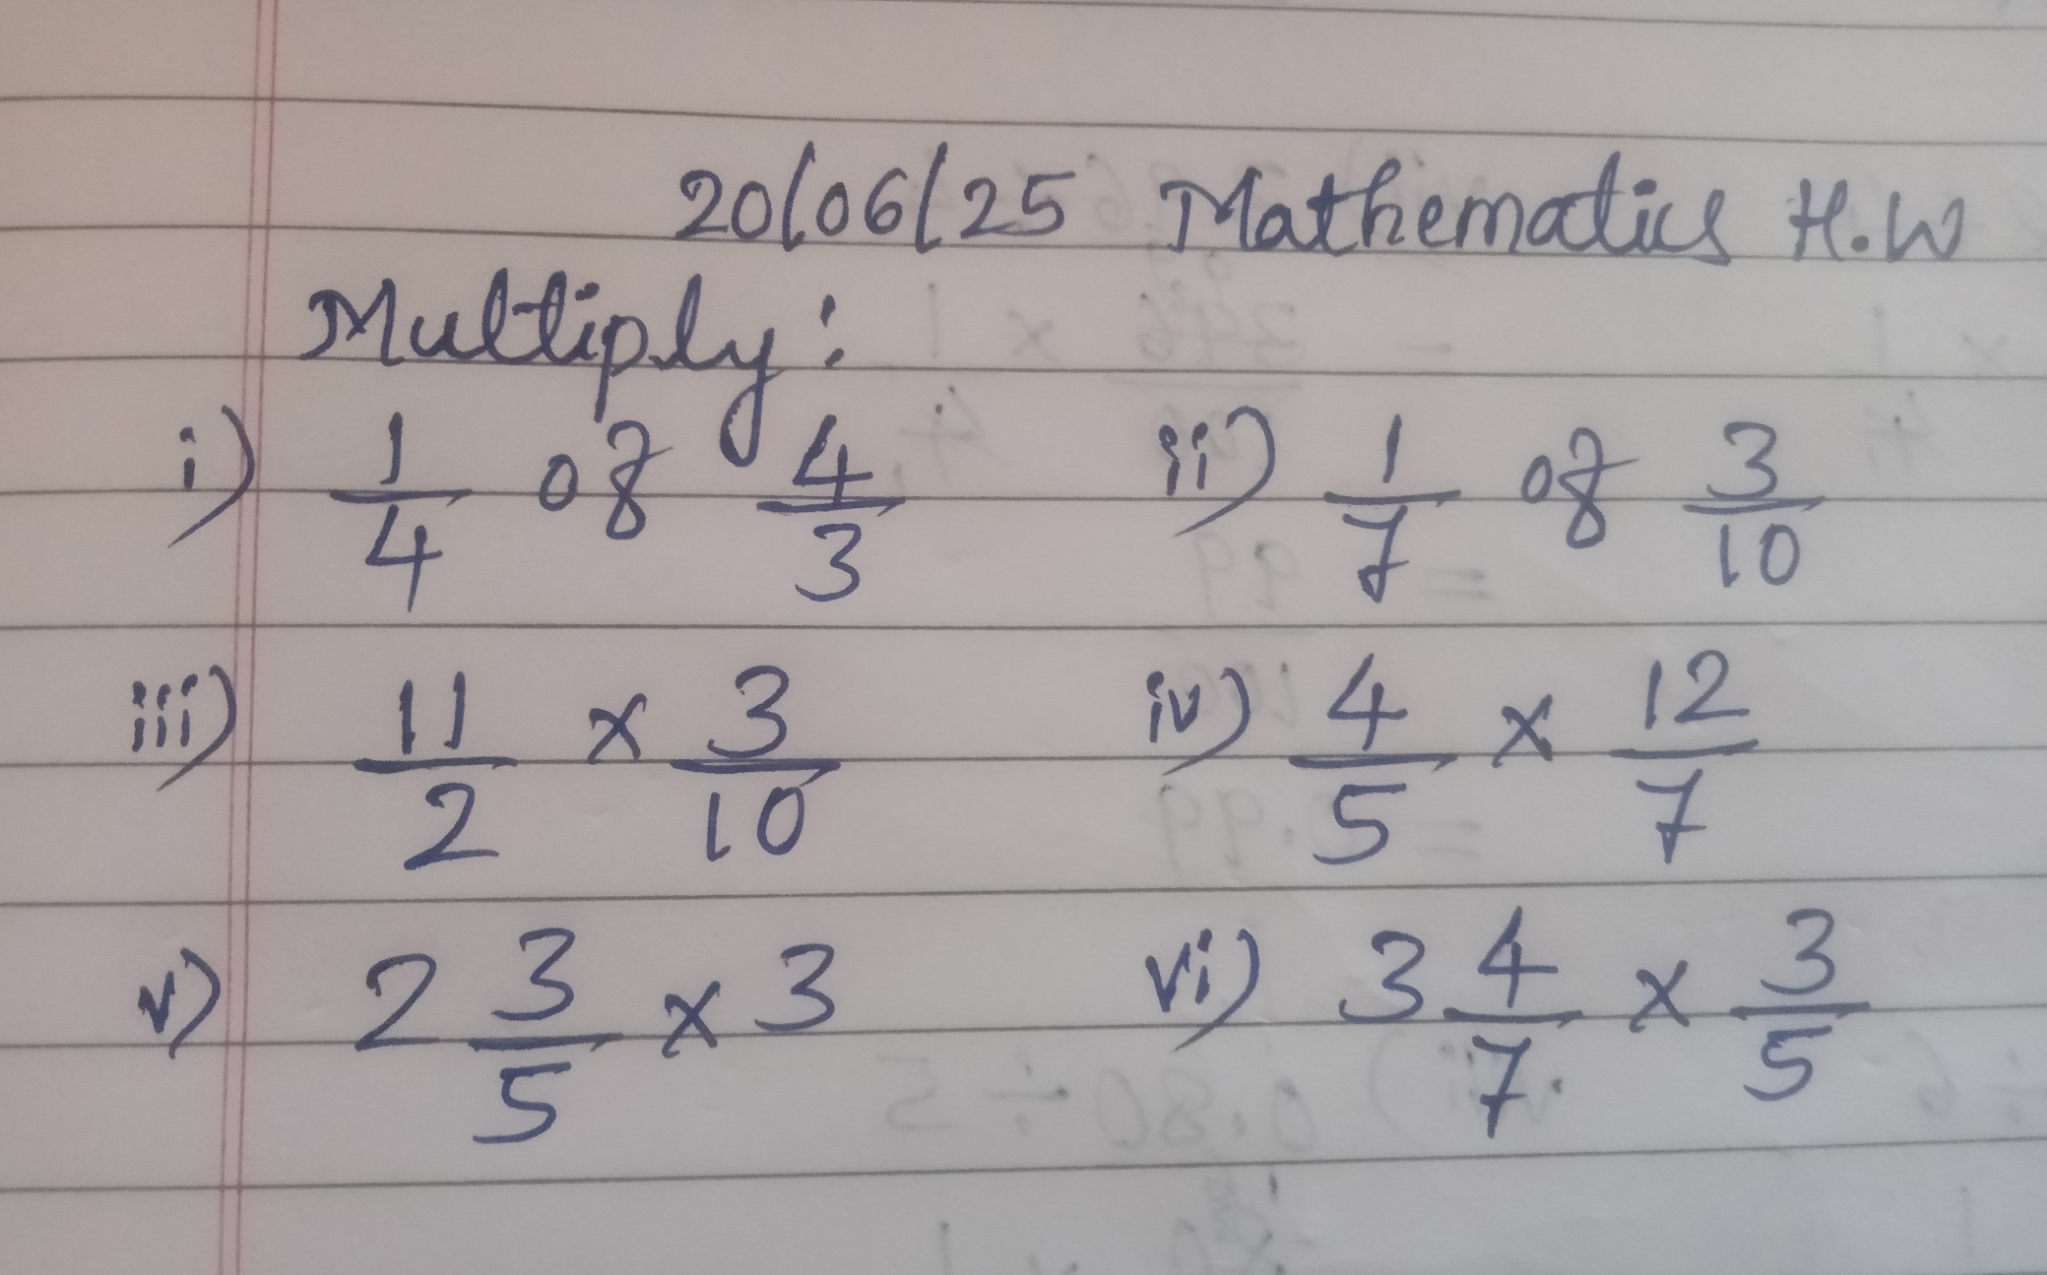 20/06/25 Mathematics H.W
Multiply:
i) 1/4 of 4/3 ii) 1/7 of 3/10
iii) 11/2 x 3/10 iv) 4/5 x 12/7
v) 2 3/5 x 3 vi) 3 4/7 x 3/5